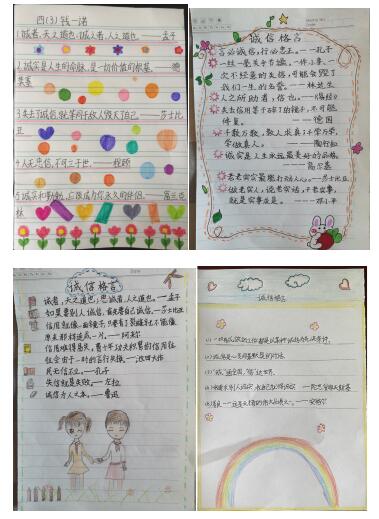 四(3) 钱一诺
1.诚者,天之道也;诚之者,人之道也。——孟子
2.诚实是人生的命脉,是一切价值的根基。——德
莱塞
3.失去了信用,就等同于敌人毁灭了自己。——莎士比
亚
4.人无忠信,不可立于世。——程颐
5.诚实和勤勉,应该成为你永久的伴侣。——富兰克
林
诚信格言
言必诚信,行必忠正。——孔子
一丝一毫关乎节操,一件小事、一
次不经意的失信,可能会毁了
我们一生的名誉。——林达生
人之所助者,信也。——《易经》
失去信用等于碎了的镜子,不可能
修复。——德国
千教万教,教人求真;千学万学,
学做真人。——陶行知
诚实是人生永远最美好的品格。
——高尔基
老老实实最能打动人心。——莎士比亚
做老实人,说老实话,干老实事,
就是实事求是。——邓小平
诚信格言
诚者,天之道也;思诚者,人之道也。——孟子
如果要别人诚信,首先要自己诚信。——莎士比亚
信用就像一面镜子,只要有了裂缝就不能像
原来那样连成一片。——阿米尔
信用难得易失,费十年功夫积累的信用往
往会由于一时的言行失掉。——池田大作
民无信不立。——孔子
失信就是失败。——左拉
诚信为人之本。——鲁迅
诚信格言